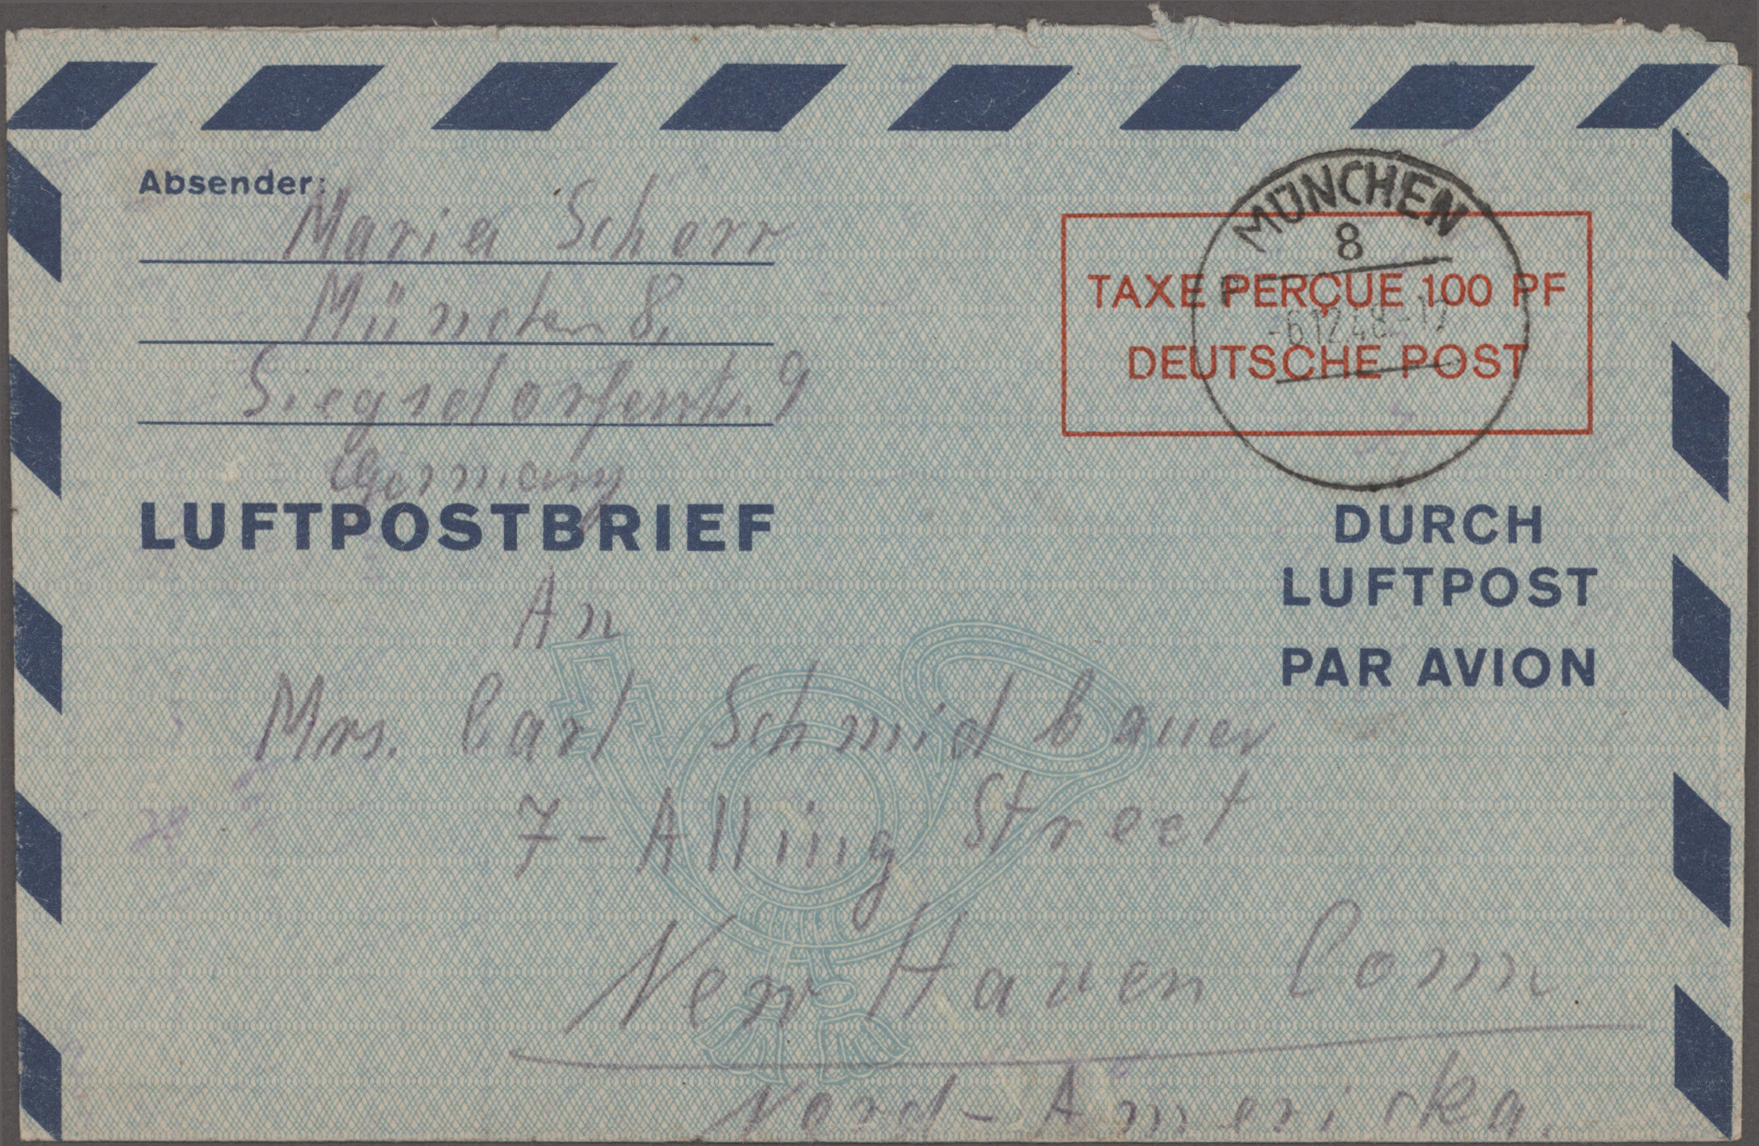 Absender:
Maria Scherr
München 8,
Siegsdorferstr. 9
Germany
MÜNCHEN
8
-6.12.48.-17
TAXE PERÇUE 100 PF
DEUTSCHE POST
LUFTPOSTBRIEF
DURCH
LUFTPOST
PAR AVION
An
Mrs. Carl Schmidbauer
7-Alling Street
New Haven Conn.
Nord-Amerika.